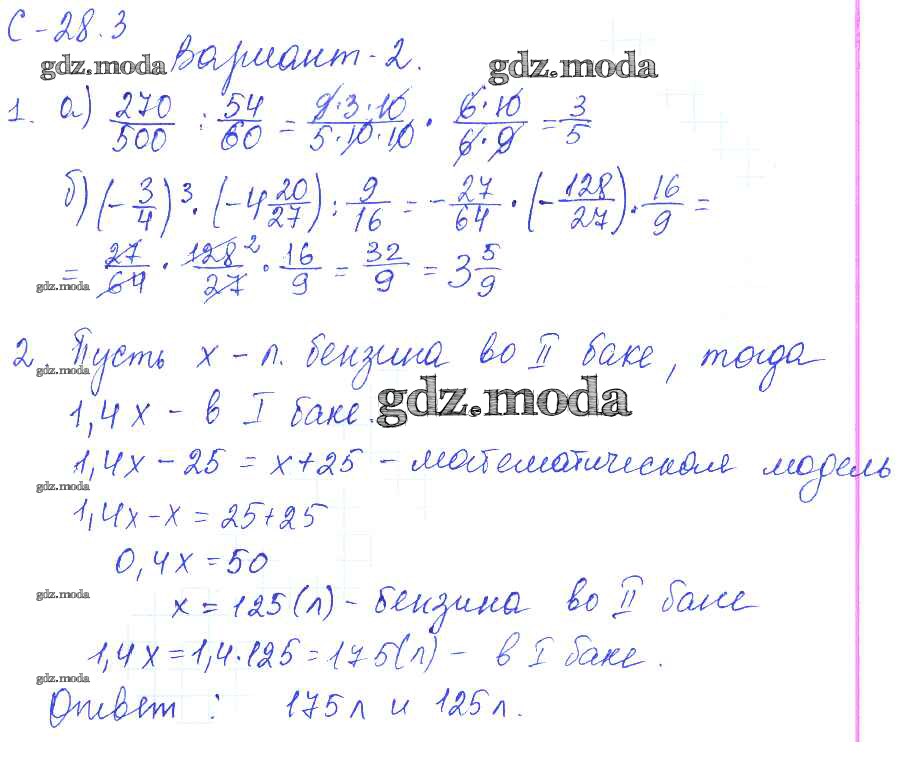 С-28.3
gdz.moda Вариант-2. gdz.moda
1. а) 270/500 : 54/60 = 9·3·10/5·10·10 · 6·10/6·9 = 3/5
б) (-3/4)³ · (-4 20/27) : 9/16 = -27/64 · (-128/27) · 16/9 =
gdz.moda = 27/64 · 128²/27 · 16/9 = 32/9 = 3 5/9
2. Пусть х - л. бензина во II баке, тогда
gdz.moda
1,4х - в I баке. gdz.moda
1,4х - 25 = х+25 - математическая модель
gdz.moda
1,4х-х = 25+25
0,4х = 50
gdz.moda х = 125(л) - бензина во II баке
1,4х = 1,4·125 = 175(л) - в I баке.
gdz.moda
Ответ: 175л и 125л.